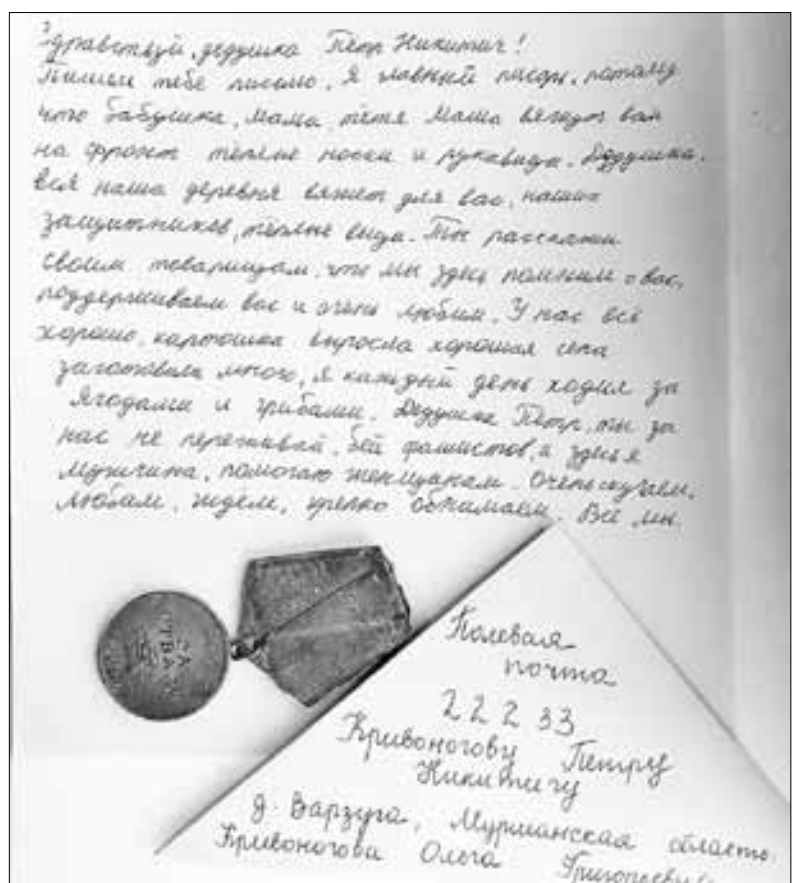 Здравствуй, дедушка Пётр Никитич!
Пишем тебе письмо. Я главный писарь, потому
что бабушка, мама, тётя Маша вяжут вам
на фронт тёплые носки и рукавицы. Дедушка,
вся наша деревня вяжет для вас, наших
защитников, тёплые вещи. Ты расскажи
своим товарищам, что мы здесь помним о вас,
поддерживаем вас и очень любим. У нас всё
хорошо, картошка выросла хорошая сена
заготовили много, я каждый день ходил за
ягодами и грибами. Дедушка Пётр, ты за
нас не переживай, бей фашистов, а здесь я
мужчина, помогаю женщинам. Очень скучаем,
любим, ждём, крепко обнимаем. Все мы.
ЗА
ОТВАГУ
СССР
Полевая
почта
22233
Кривоногову Петру
Никитичу
д. Варзуга, Мурманская область
Кривоногова Ольга